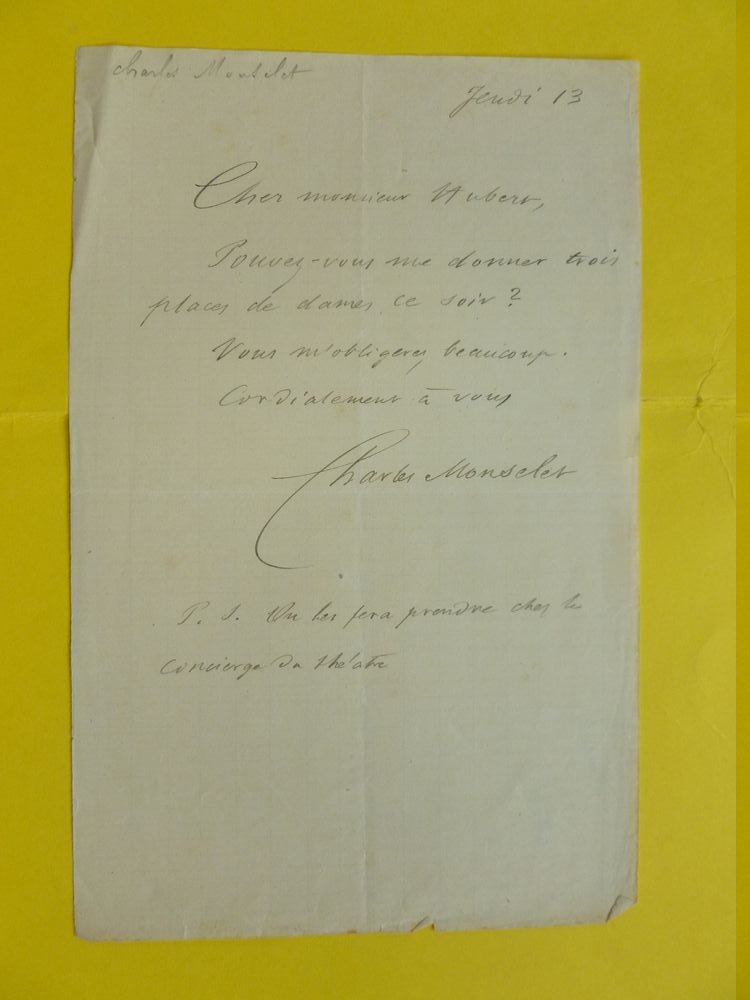 Charles Monselet
Jeudi 13
Cher monsieur Hubert,
Pouvez-vous me donner trois
places de dames ce soir ?
Vous m'obligerez beaucoup.
Cordialement à vous
Charles Monselet
P. S. On les fera prendre chez le
concierge du théâtre